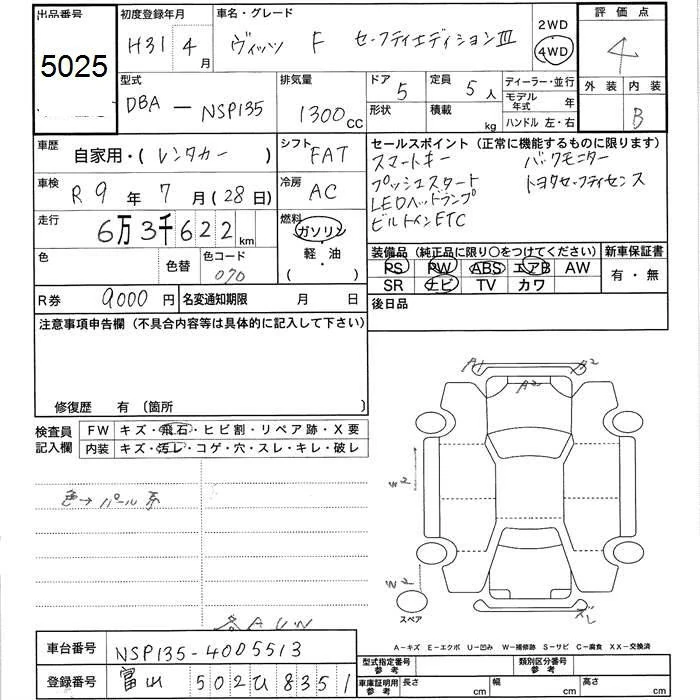 出品番号 初度登録年月 車名・グレード 2WD 評価点
5025 H31 4月 ヴィッツ F セーフティエディションIII 4WD 4
型式 排気量 ドア 定員 ディーラー・並行 外装 内装
DBA - NSP135 1300cc 5 5人 モデル年式 年 B
形状 積載 kg ハンドル 左・右
車歴 自家用・(レンタカー) シフト FAT セールスポイント(正常に機能するものに限ります)
スマートキー バックモニター
車検 R9年 7月(28日) 冷房 AC プッシュスタート トヨタセーフティセンス
LEDヘッドランプ
走行 6万3千622km 燃料 ガソリン ビルトインETC
軽・油
( )
色 色替 色コード 070 装備品(純正品に限り○をつけてください) 新車保証書
PS PW ABS エアB AW 有・無
SR ナビ TV カワ
R券 9000円 名変通知期限 月 日 後日品
注意事項申告欄(不具合内容等は具体的に記入して下さい)
修復歴 有 (箇所 )
検査員記入欄 FW キズ・飛石・ヒビ割・リペア跡・X要
内装 キズ・汚レ・コゲ・穴・スレ・キレ・破レ
A1 A2 A2
色→パール系
W2
W2
スペア ズレ
各AUW
A-キズ E-エクボ U-凹み W-補修跡 S-サビ C-腐食 XX-交換済
車台番号 NSP135-4005513 型式指定番号参考 類別区分番号参考
登録番号 富山 502ひ8351 車庫証明用参考 長さ cm 幅 cm 高さ cm